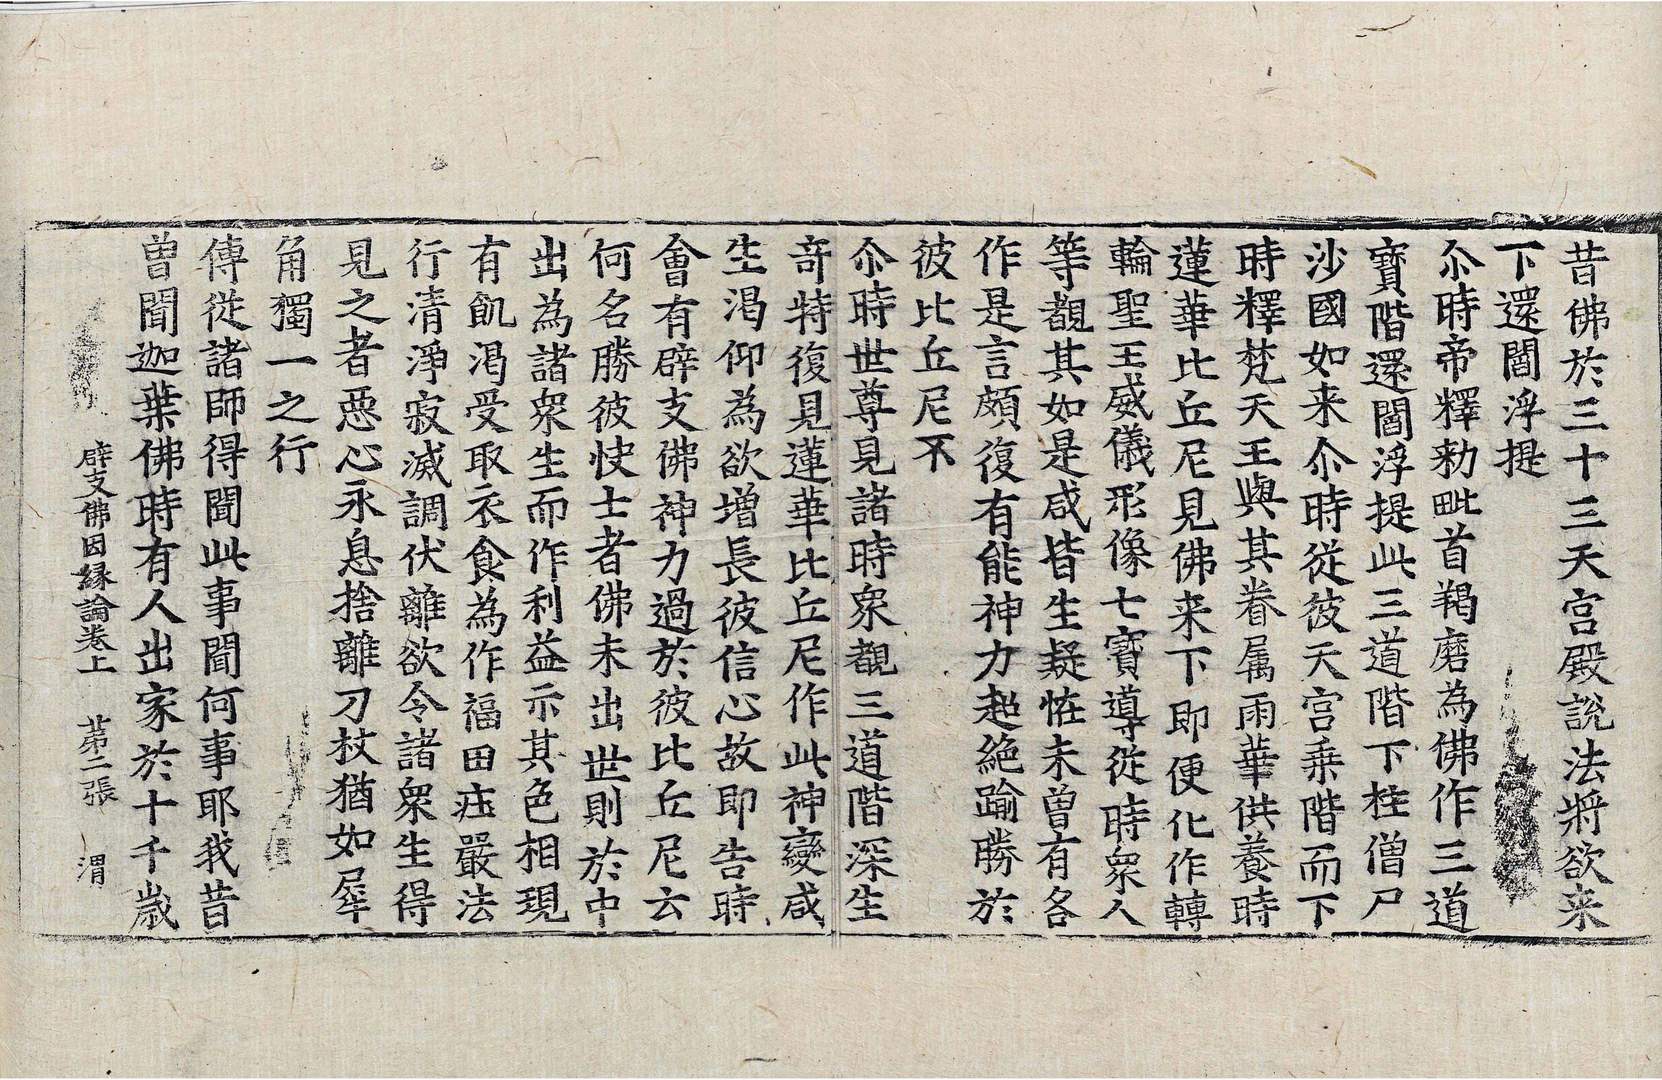 昔佛於三十三天宮殿說法將欲来
下還閻浮提
尒時帝釋勑毗首羯磨為佛作三道
寶階還閻浮提此三道階下桂僧尸
沙國如来尒時従彼天宮乗階而下
時釋梵天王與其眷属雨華供養時
蓮華比丘尼見佛来下即便化作轉
輪聖王威儀形像七寶導従時眾人
等覩其如是咸皆生疑恠未曾有各
作是言頗復有能神力超絶踰勝於
彼比丘尼不
尒時世尊見諸時眾覩三道階深生
奇特復見蓮華比丘尼作此神變咸
生渴仰為欲增長彼信心故即告時
會有辟支佛神力過於彼比丘尼云
何名勝彼快士者佛未出世則於中
出為諸眾生而作利益示其色相現
有飢渇受取衣食為作福田莊嚴法
行清淨寂滅調伏離欲令諸眾生得
見之者惡心永息捨離刀杖猶如犀
角獨一之行
傳従諸師得聞此事聞何事耶我昔
曽聞迦葉佛時有人出家於十千歲
辟支佛因縁論卷上 苐二張 渭